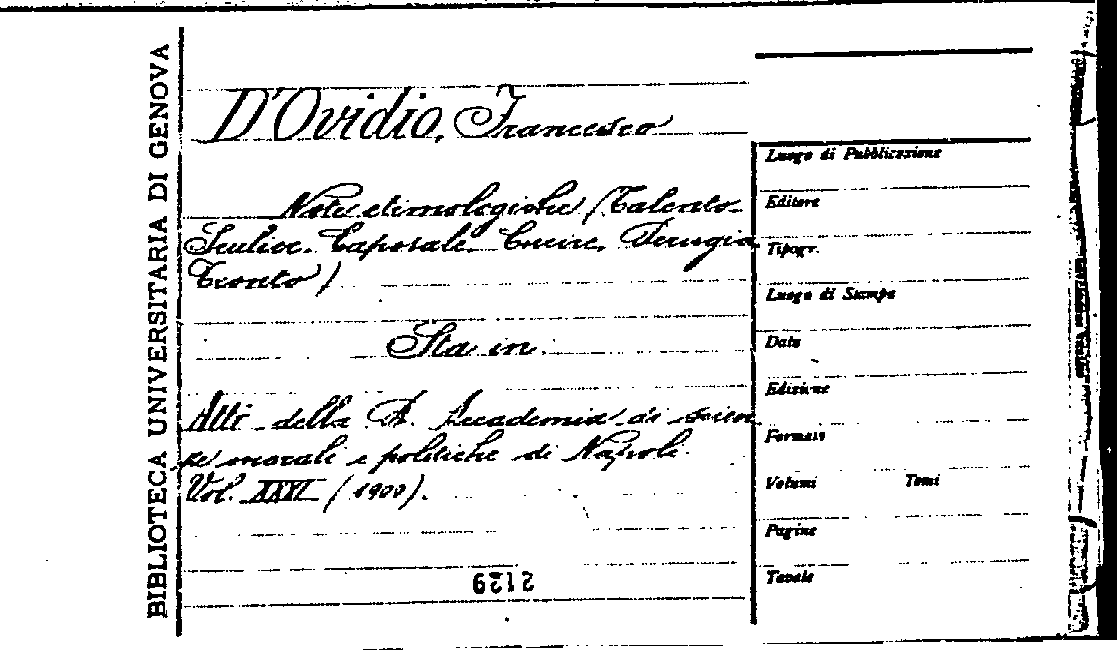 BIBLIOTECA UNIVERSITARIA DI GENOVA
D'Ovidio, Francesco
Note etimologiche (Talento-
Caporale. Perugia.
Sta in:
Atti della R. Accademia di scien
ze morali e politiche di Napoli.
Vol. XXXI (1900).
2129
Luogo di Pubblicazione
Editore
Tipogr.
Luogo di Stampa
Data
Edizione
Formato
Volumi Tomi
Pagine
Tavole